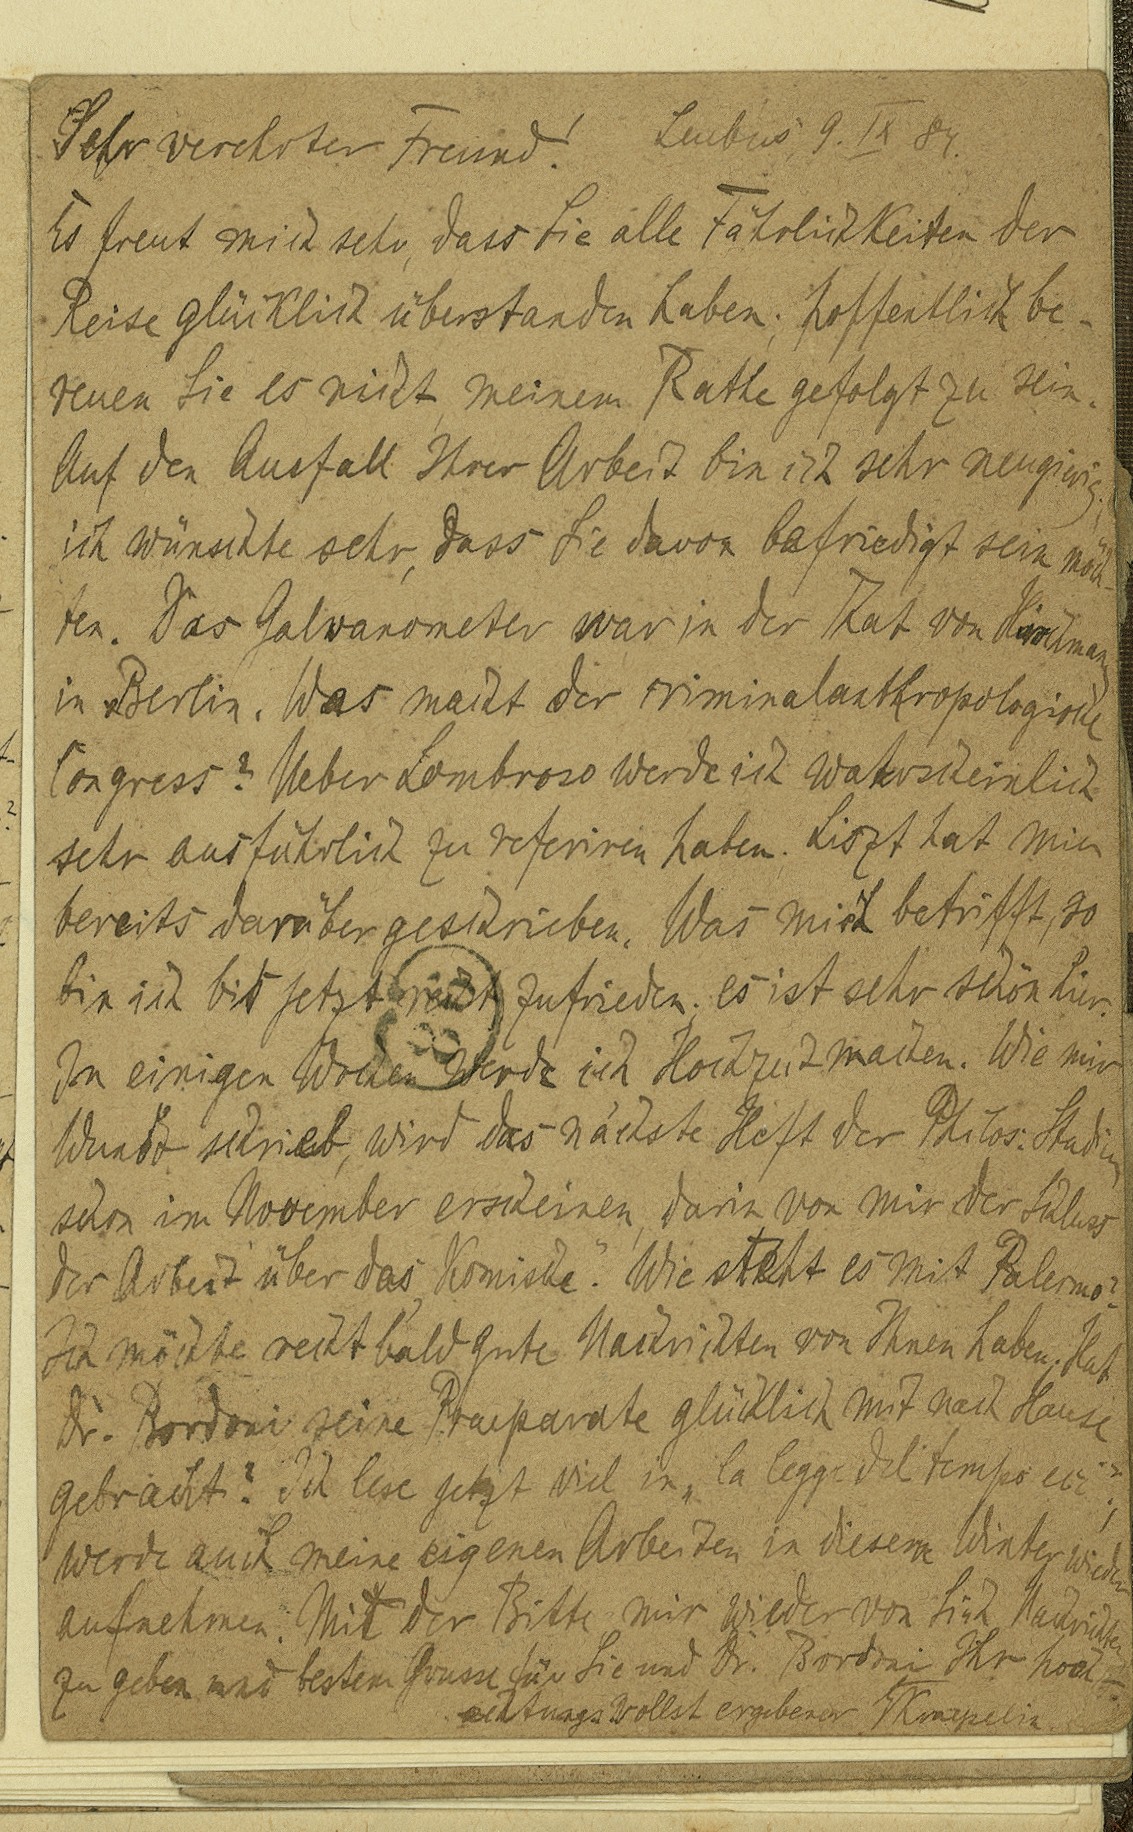 Sehr verehrter Freund! Leubus, 9. IX 84.
Es freut mich sehr, dass Sie alle Fährlichkeiten der
Reise glücklich überstanden haben; hoffentlich be-
reuen Sie es nicht, meinem Rathe gefolgt zu sein.
Auf den Ausfall Ihrer Arbeit bin ich sehr neugierig;
ich wünschte sehr, dass Sie davon befriedigt sein möch-
ten. Das Galvanometer war in der That von Hirschmann
in Berlin. Was macht der criminalanthropologische
Congress? Ueber Lombroso werde ich wahrscheinlich
sehr ausführlich zu referiren haben; Liszt hat mir
bereits darüber geschrieben. Was mich betrifft, so
bin ich bis jetzt recht zufrieden; es ist sehr schön hier.
In einigen Wochen werde ich Hochzeit machen. Wie mir
Wundt schrieb, wird das nächste Heft der Philos. Studien
schon im November erscheinen, darin von mir der Schluss
der Arbeit über das „Komische“. Wie steht es mit Palermo?
Ich möchte recht bald gute Nachrichten von Ihnen haben. Hat
Dr. Bordoni seine Praeparate glücklich mit nach Hause
gebracht? Ich lese jetzt viel in „la legge del tempo etc“;
werde auch meine eigenen Arbeiten in diesem Winter wieder
aufnehmen. Mit der Bitte mir wieder von Sich Nachrichten
zu geben und bestem Grusse für Sie und Dr. Bordoni Ihr hoch-
achtungsvollst ergebener Kraepelin